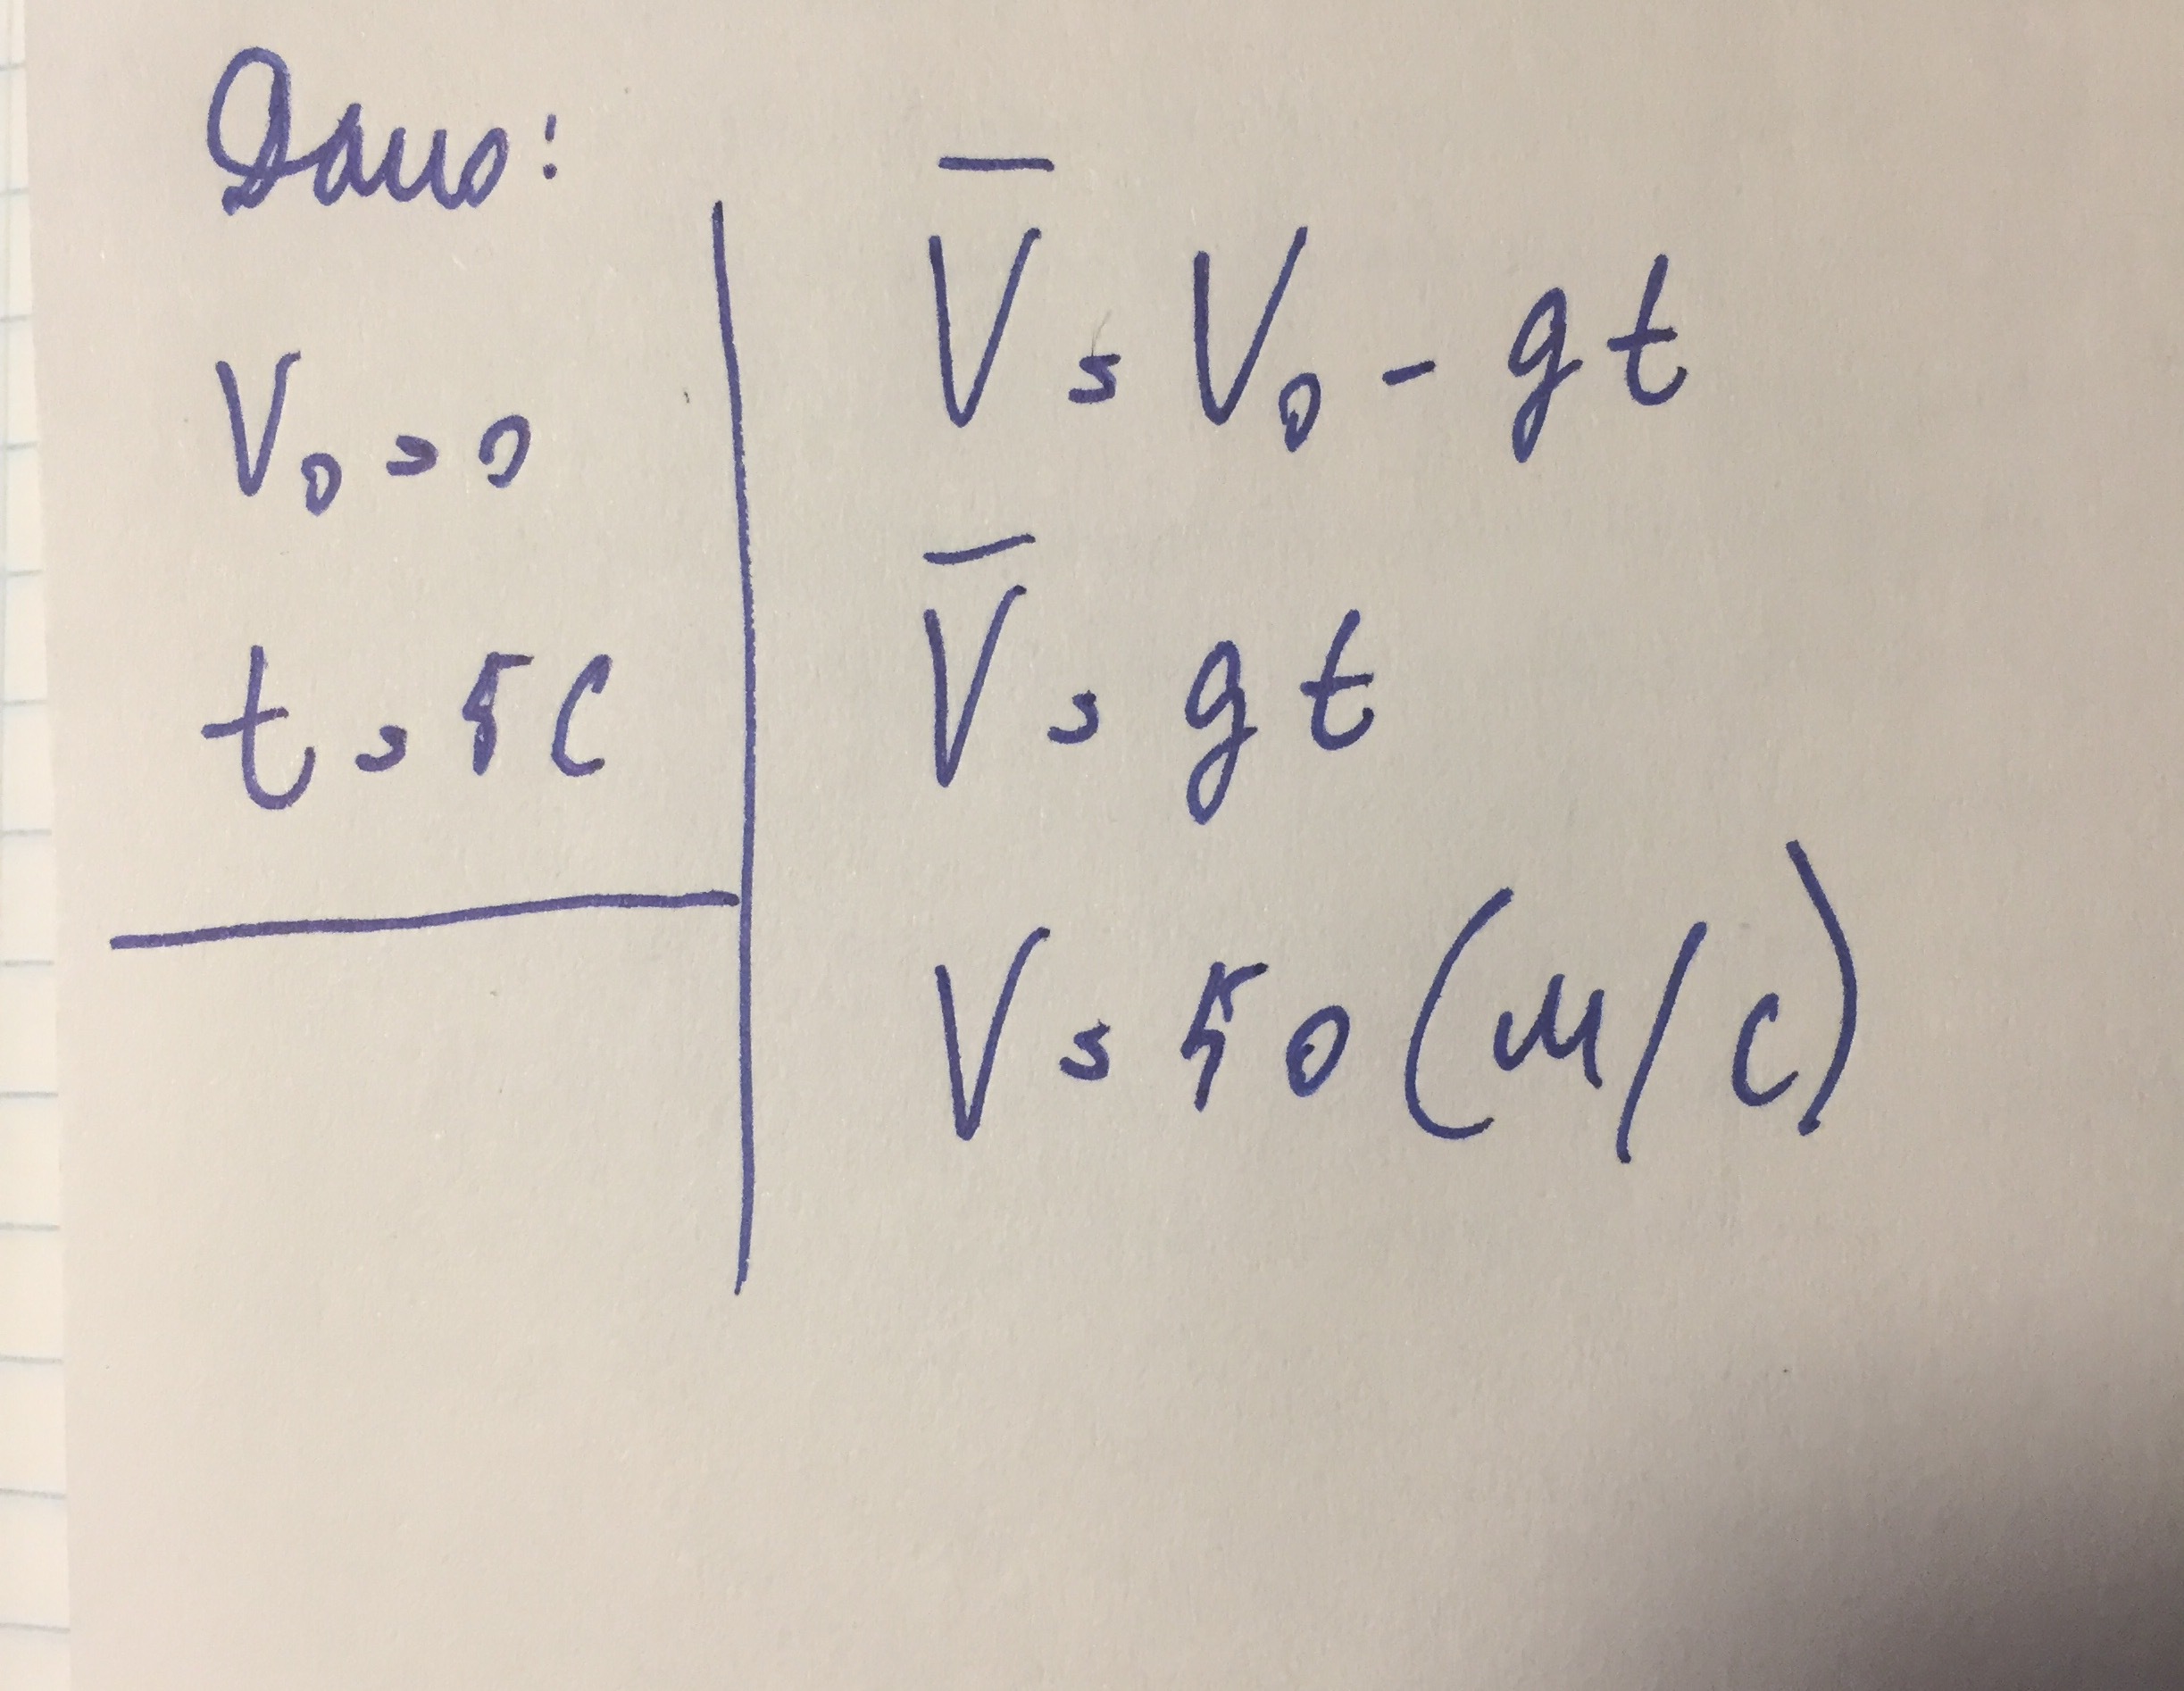 Дано:
V₀ = 0
t = 5 с
V̅ = V₀ - gt
V̅ = gt
V = 50 (м/с)